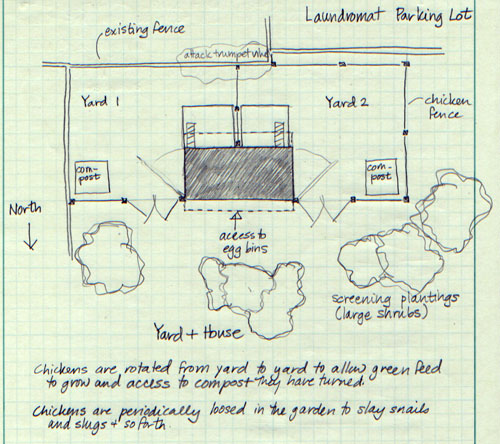 Laundromat Parking Lot
existing fence
attack trumpet vine
Yard 1
Yard 2
chicken
fence
com-
post
com-
post
North
access to
egg bins
screening plantings
(large shrubs)
Yard + House
Chickens are rotated from yard to yard to allow green feed
to grow and access to compost they have turned.
Chickens are periodically loosed in the garden to slay snails
and slugs + so forth.